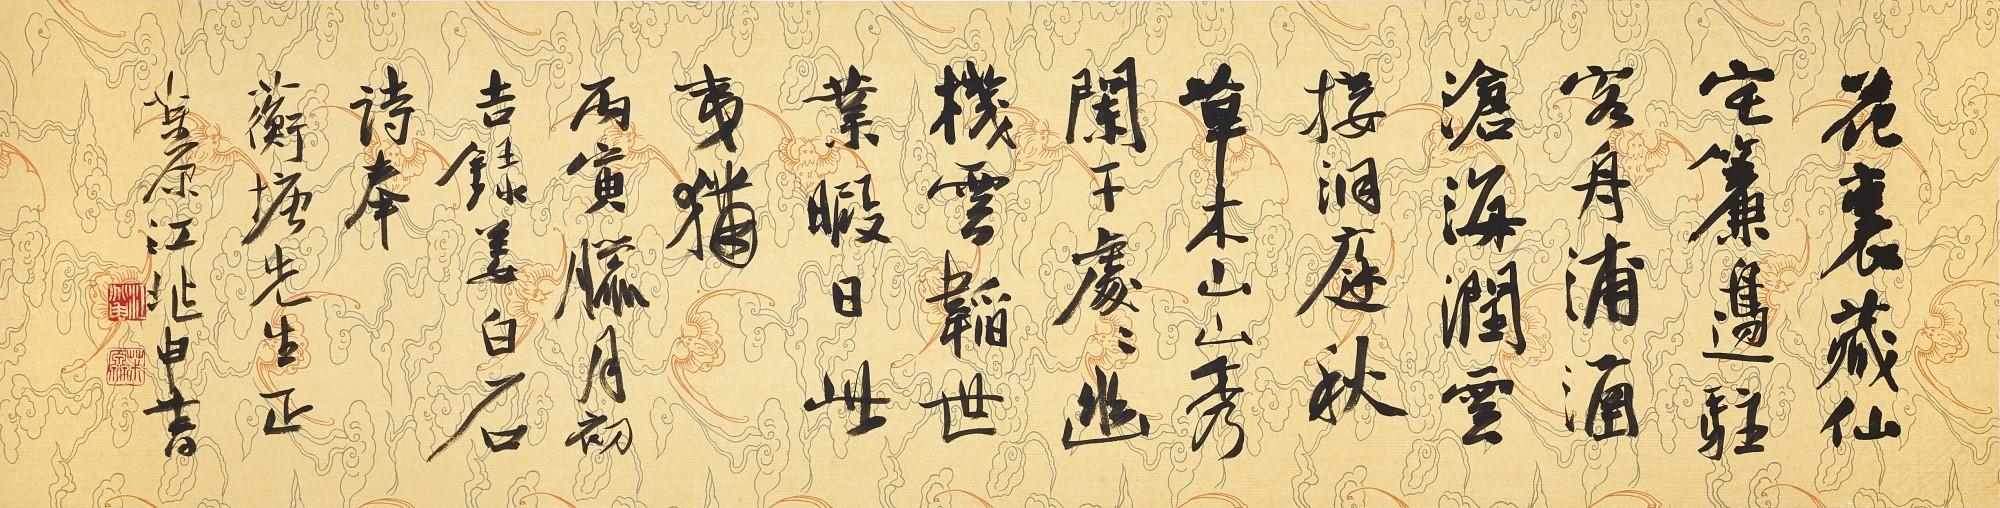 花裏藏仙
宅簾邊駐
客舟浦涵
滄海潤雲
接洞庭秋
草木山山秀
闌干處〻幽
機雲韜世
業暇日此
夷猶
丙寅臘月初
吉錄姜白石
詩奉
蘅塘先生正
茮原江兆申書